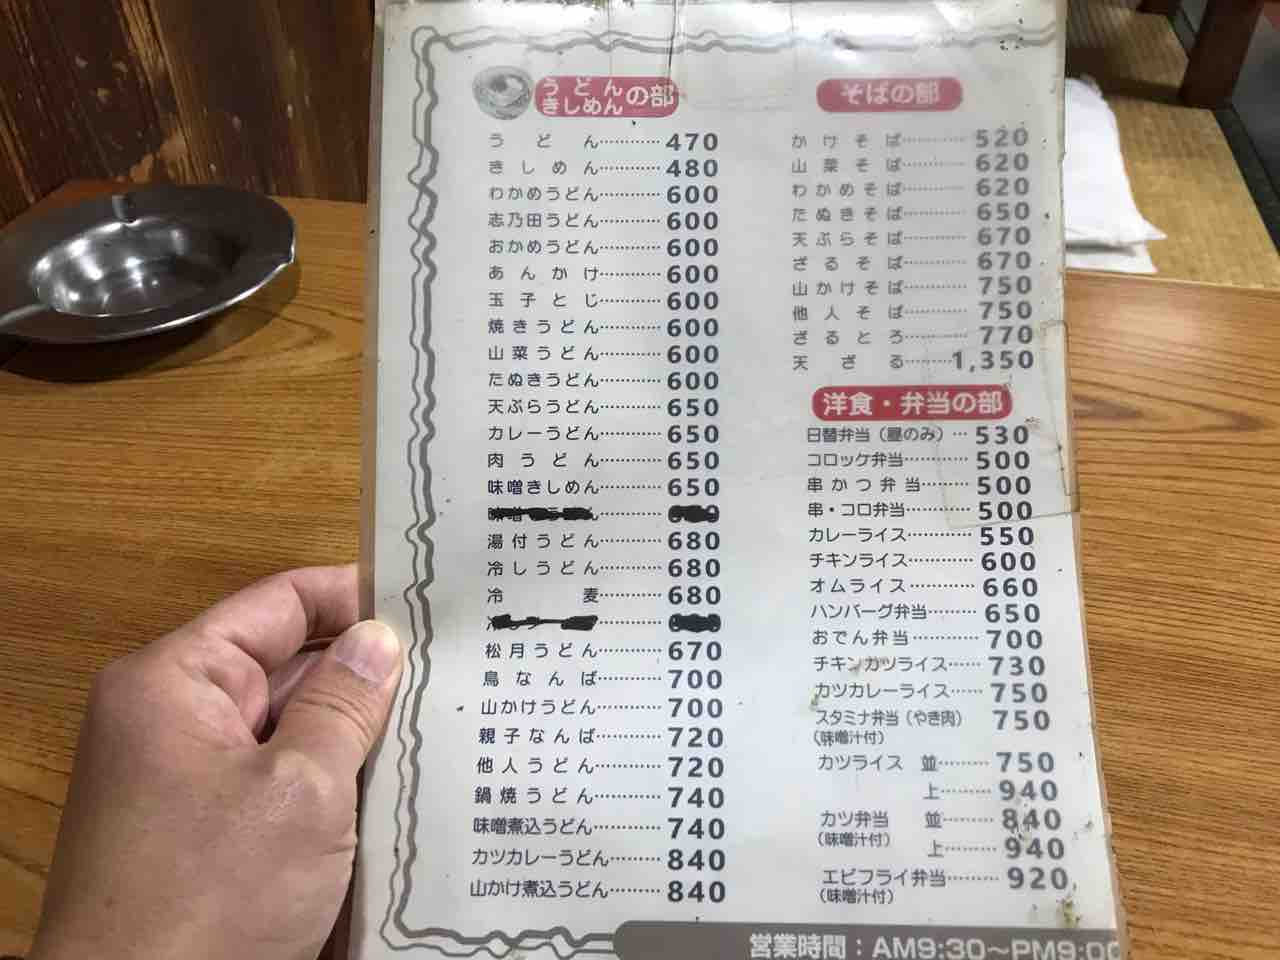 うどん
きしめんの部
うどん………… 470
きしめん………… 480
わかめうどん………… 600
志乃田うどん………… 600
おかめうどん………… 600
あんかけ………… 600
玉子とじ………… 600
焼きうどん………… 600
山菜うどん………… 600
たぬきうどん………… 600
天ぷらうどん………… 650
カレーうどん………… 650
肉うどん………… 650
味噌きしめん………… 650
湯付うどん………… 680
冷しうどん………… 680
冷麦………… 680
松月うどん………… 670
鳥なんば………… 700
山かけうどん………… 700
親子なんば………… 720
他人うどん………… 720
鍋焼うどん………… 740
味噌煮込うどん………… 740
カツカレーうどん………… 840
山かけ煮込うどん………… 840
そばの部
かけそば………… 520
山菜そば………… 620
わかめそば………… 620
たぬきそば………… 650
天ぷらそば………… 670
ざるそば………… 670
山かけそば………… 750
他人そば………… 750
ざるとろ………… 770
天ざる………1,350
洋食・弁当の部
日替弁当（昼のみ）… 530
コロッケ弁当………… 500
串かつ弁当……… 500
串・コロ弁当………… 500
カレーライス………… 550
チキンライス………… 600
オムライス………… 660
ハンバーグ弁当……… 650
おでん弁当………… 700
チキンカツライス…… 730
カツカレーライス…… 750
スタミナ弁当（やき肉） 750
（味噌汁付）
カツライス 並……… 750
上……… 940
カツ弁当 並……… 840
（味噌汁付） 上……… 940
エビフライ弁当……… 920
（味噌汁付）
営業時間：AM9:30〜PM9:00